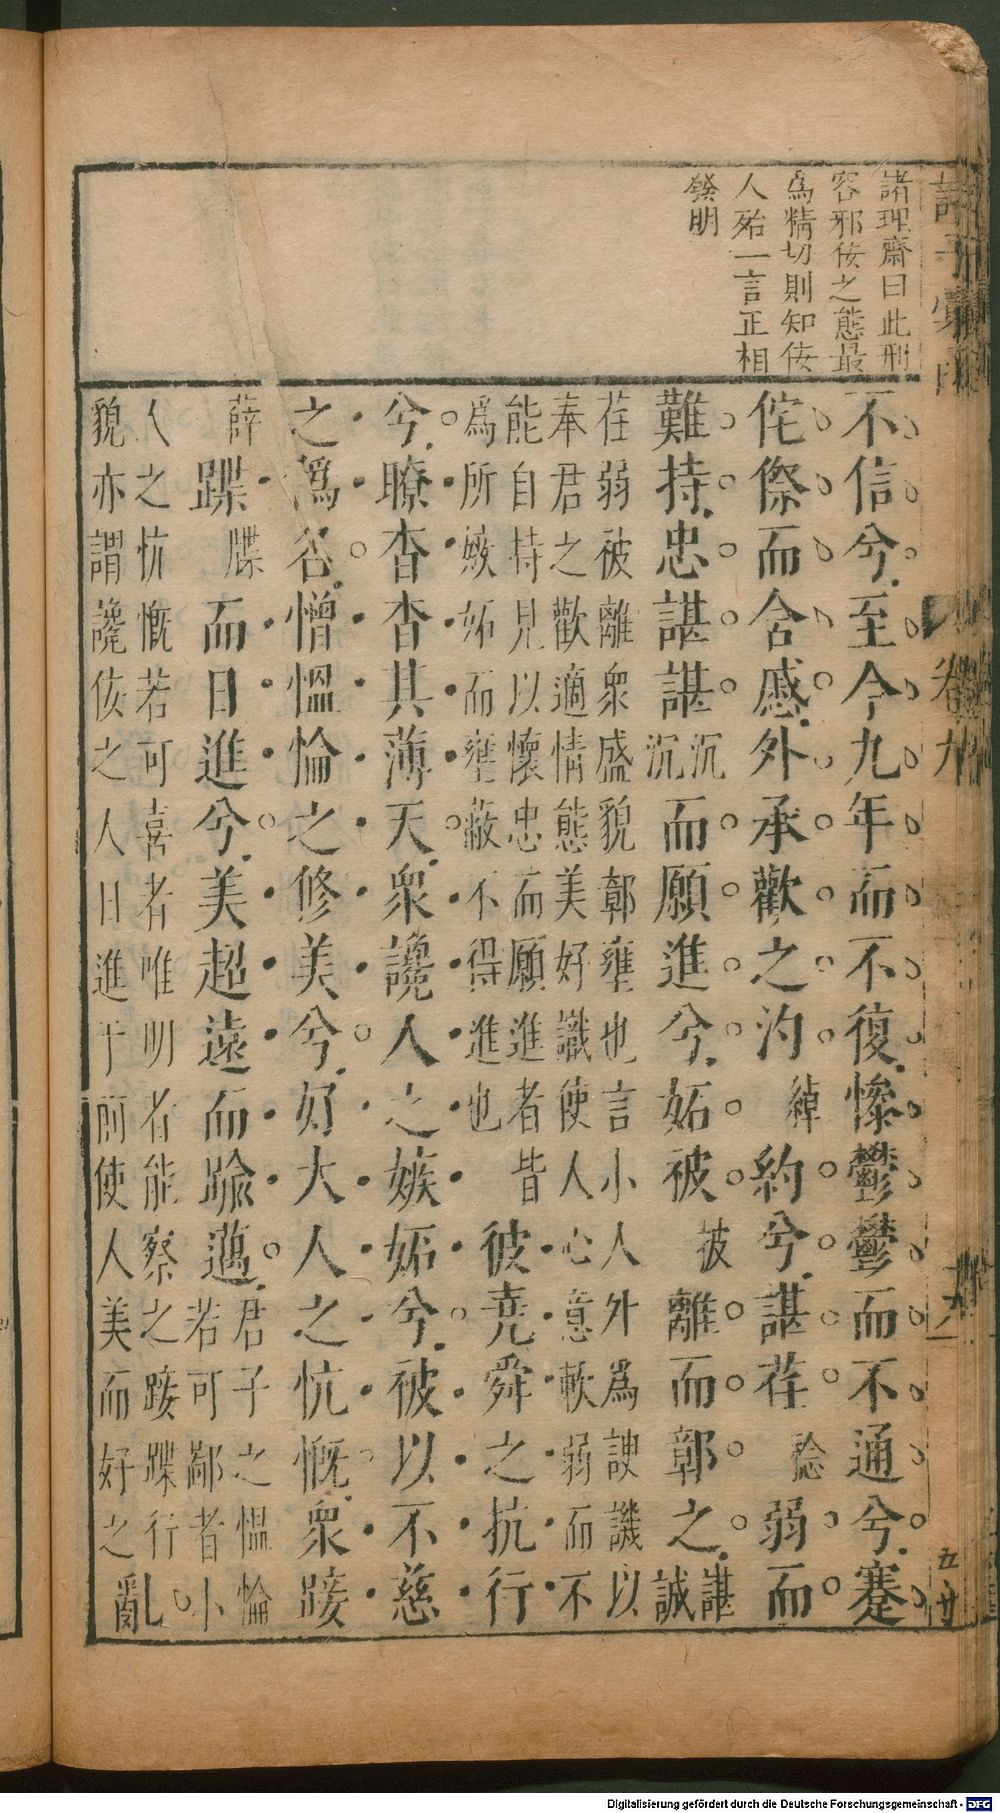 諸理齋曰此刑
容邪佞之態最
為精切則知佞
人殆一言正相
發明
不信兮至今九年而不復慘鬱鬱而不通兮蹇
侘傺而含慼外承歡之汋綽約兮諶荏稔弱而
難持忠諶諶沉沉而願進兮妬被被離而鄣之諶誠
荏弱被離衆盛貌鄣壅也言小人外為諛譏以
奉君之歡適情態美好識使人心意軟弱而不
能自持見以懷忠而願進者皆
為所嫉妬而壅蔽不得進也
彼堯舜之抗行
兮瞭杳杳其薄天衆讒人之嫉妬兮被以不慈
之為名憎慍惀之修美兮好大人之忼慨衆踥
薛蹀牒而日進兮美超遠而踰邁君子之慍惀
若可鄙者小
人之忼慨若可喜者唯明者能察之踥蹀行
貌亦謂讒佞之人日進于前使人美而好之
亂
卷九
五
廿
Digitalisierung gefördert durch die Deutsche Forschungsgemeinschaft - DFG